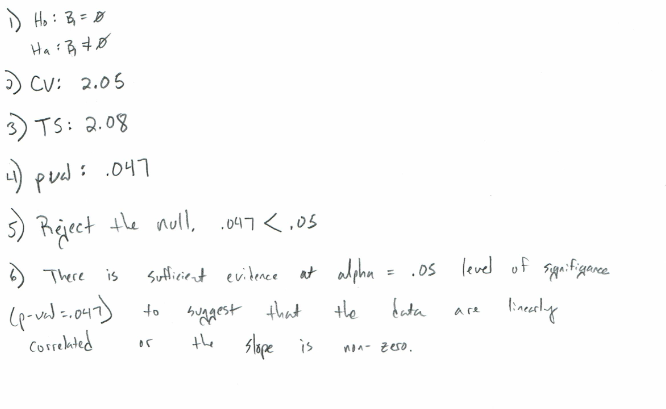 1) H₀: β₁ = 0
Hₐ: β₁ ≠ 0
2) CV: 2.05
3) TS: 2.08
4) pval: .047
5) Reject the null, .047 < .05
6) There is sufficient evidence at alpha = .05 level of signifigance
(p-val = .047) to suggest that the data are linearly
correlated or the slope is non-zero.